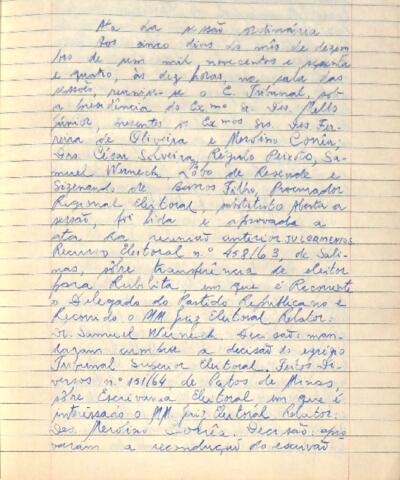 Ata da sessão ordinária
Aos cinco dias do mês de dezem
bro de um mil novecentos e sessenta
e quatro, às dez horas, na sala das
sessões, reuniu-se o E. Tribunal, sob
a presidência do Exmo Sr. Des. Mello
Júnior, presentes os Exmos Srs. Des. Fer-
reira de Oliveira e Merolino Corrêa;
Drs. César Silveira, Régulo Peixoto, Sa-
muel Werneck, Lôbo de Resende e
Sizenando de Barros Filho, Procurador
Regional Eleitoral, substituto. Aberta a
sessão, foi lida e aprovada a
ata da reunião anterior. JULGAMENTOS:
Recurso Eleitoral n.º 458/63, de Sali-
nas, sôbre transferência de eleitor
para Rubelita, em que é Recorrente
o Delegado do Partido Republicano e
Recorrido o MM. Juiz Eleitoral. Relator:
Dr. Samuel Werneck. Decisão: man-
daram cumprir a decisão do egrégio
Tribunal Superior Eleitoral. Feitos Di-
versos n.º 151/64, de Patos de Minas,
sôbre Escrivania Eleitoral em que é
interessado o MM. Juiz Eleitoral. Relator:
Des. Merolino Corrêa. Decisão: apro-
varam a recondução do escrivão